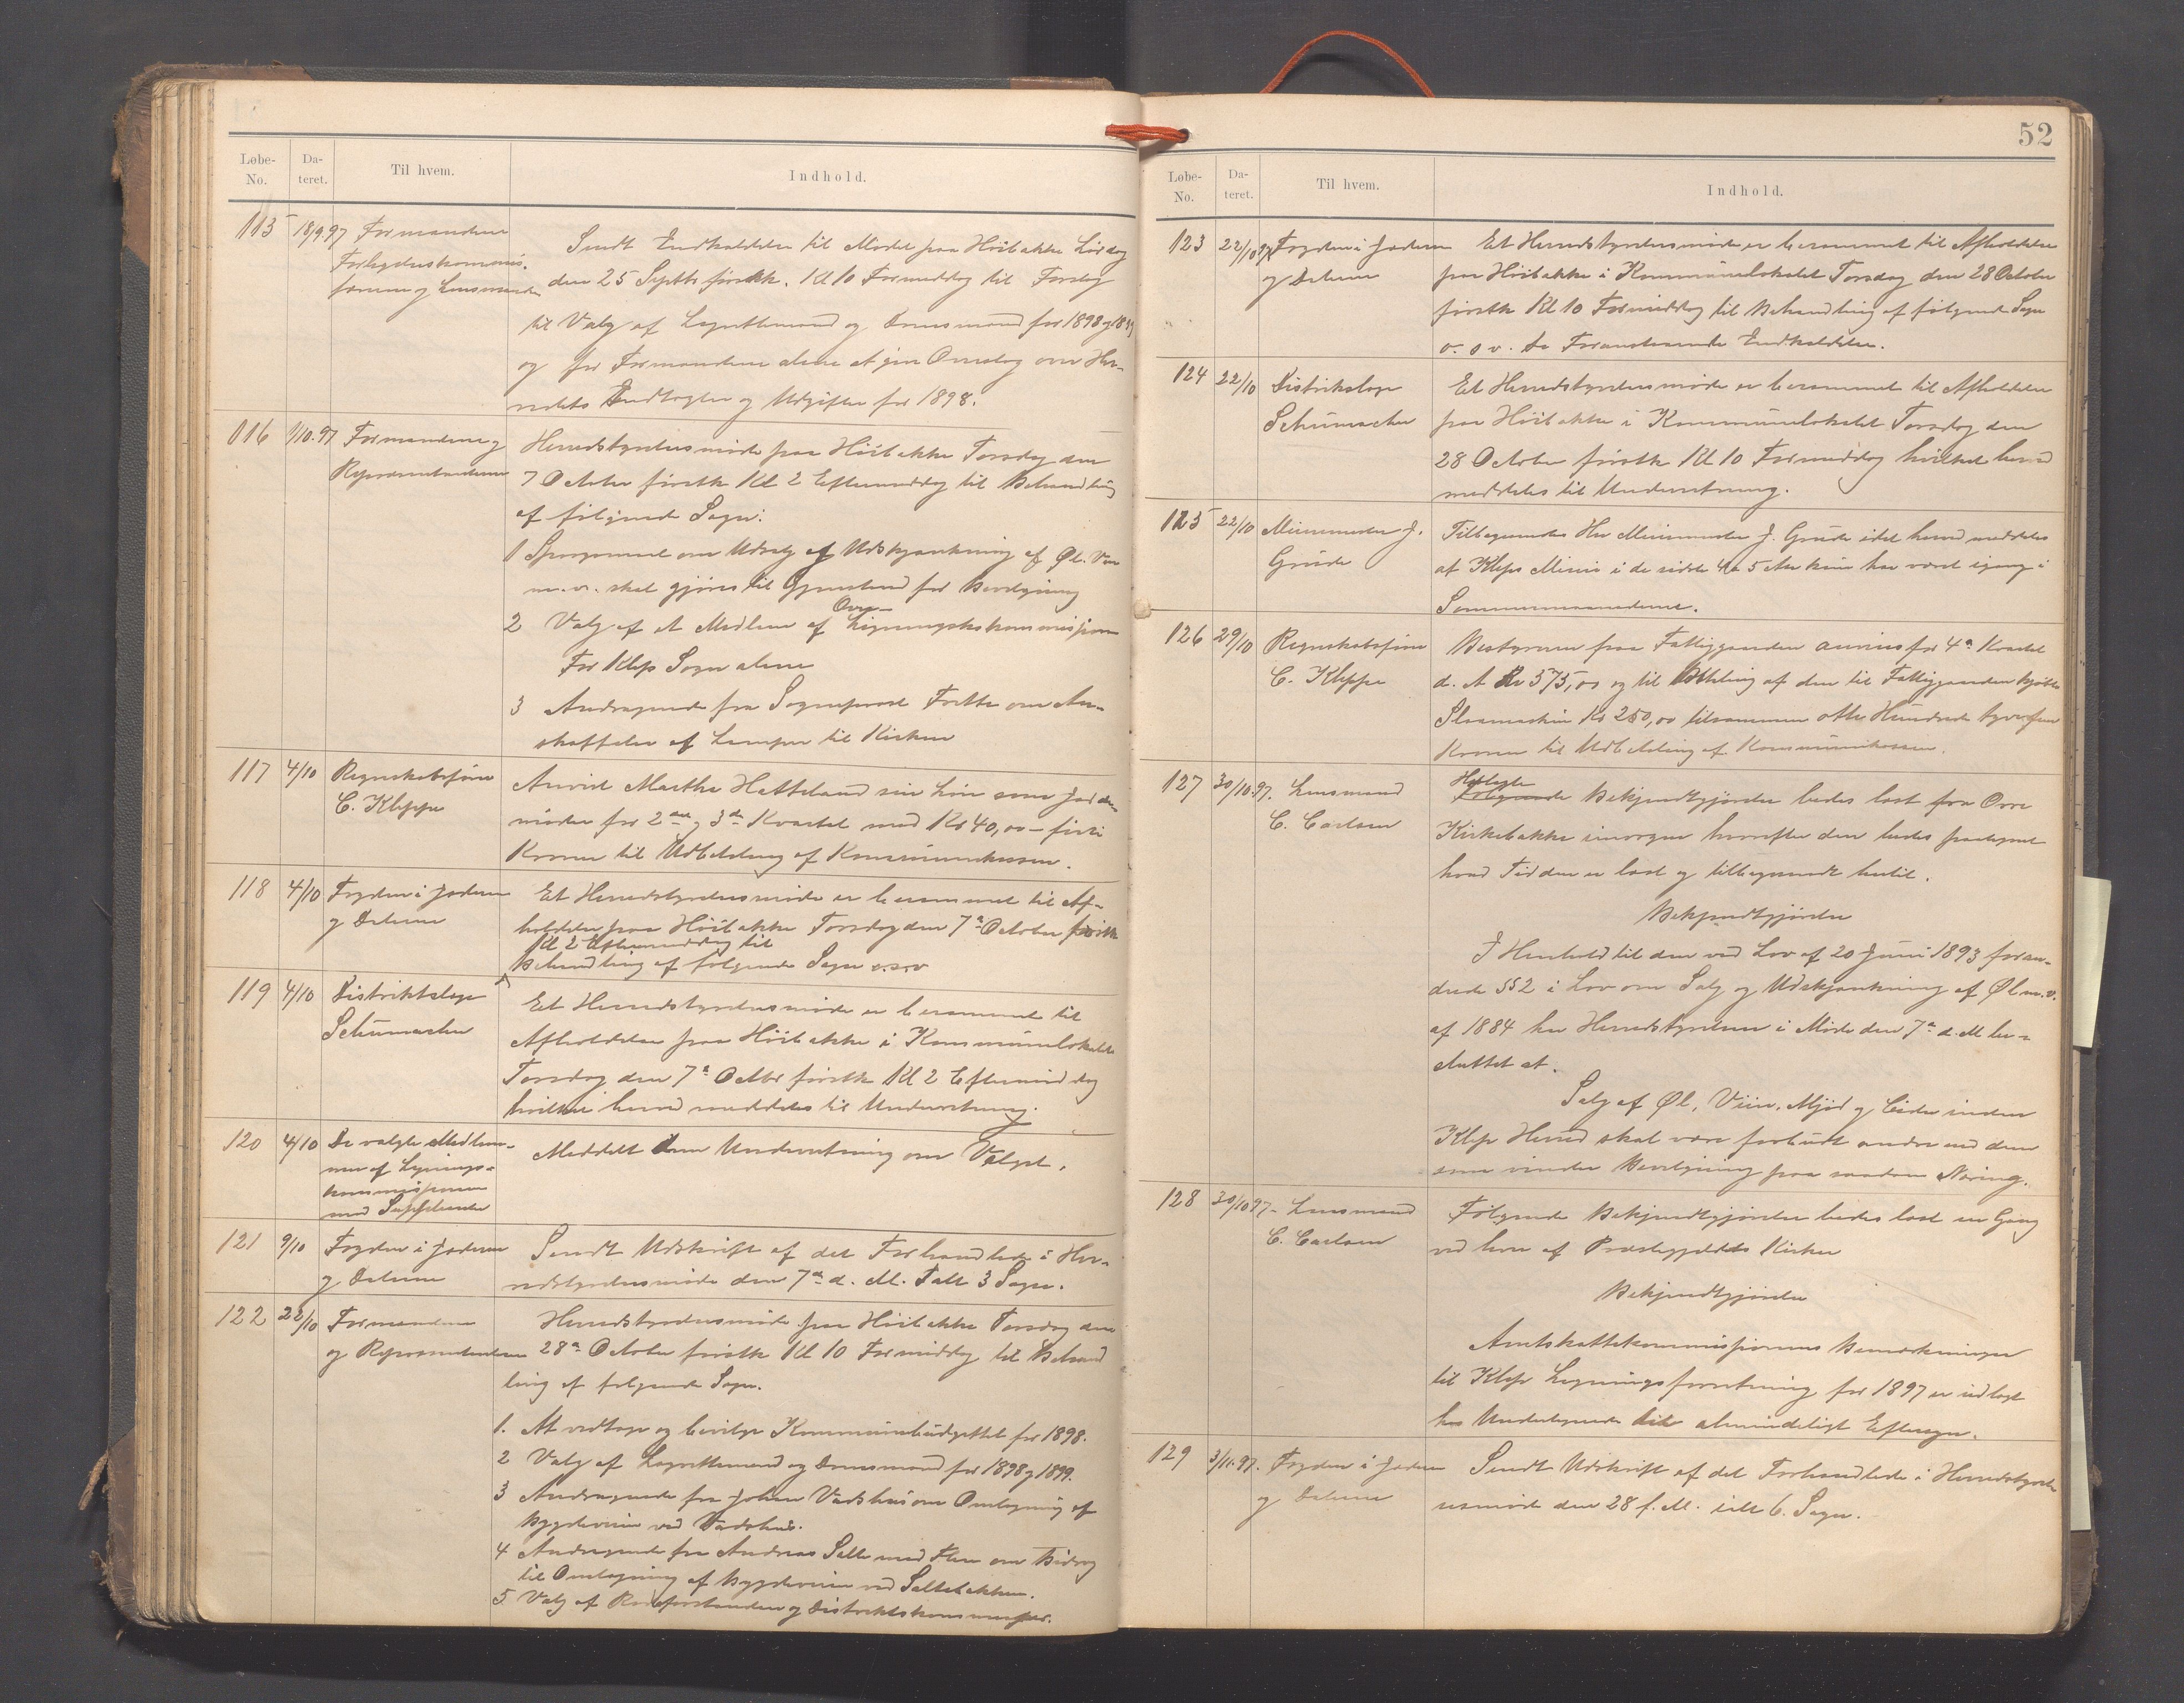 Løbe-No. Da-teret. Til hvem. Indhold.
115 18/9.97 Formændene
Forligelseskommis-
færerne og Lensmanden
Sendt Indkaldelse til Mødet paa Höibakke Lördag
den 25 Septbr førstk. Kl 10 Formiddag til Forslag
til Valg af Lagrettemænd og Domsmænd for 1898 og 1899
og for Formændene alene at give Overslag over Her-
redets Indtægter og Udgifter for 1898.
116 1/10.97 Formændene og
Repræsentanterne
Herredstyrelsesmöde paa Höibakke Torsdag den
7 October förstk Kl 2 Eftermiddag til Behandling
af fölgende Sager:
1 Spörgsmaal om Udsalg og Udskjænkning af Øl. Vin
m.v. skal gjöres til Gjenstand for Bevilgning
2 Valg af et Medlem af Over-
Ligningskommissjonen
For Klep Sogn alene
3 Andragende fra Sogneprest om An-
skaffelse af Lamper til Kirken
117 4/10 Regnskabsförer
C. Kleppe
Anvist Marthe Hatteland sin Lön som Jorde-
moder for 2det og 3die Kvartal med Kr 40,00 – firti
Kroner til Udbetaling af Kommunekassen.
118 4/10 Fogden i Jæderen
og Dalerne
Et Herredstyrelsesmöde er berammet til Af-
holdelse paa Höibakke Torsdag den 7de October förstk
Kl 2 Eftermiddag til
Behandling af fölgende Sager o.s.v
119 4/10 Distriktslæge
Schümacher
Et Herredstyrelsesmöde er berammet til
Afholdelse paa Höibakke i Kommunelokalet
Torsdag den 7de Octbr förstk Kl 2 Eftermiddag
hvilket herved meddeles til Underretning.
120 4/10 De valgte Medlem-
mer af Lignings-
kommissjonen
med Suppleanter
Meddelt dem Underretning om Valget.
121 9/10 Fogden i Jæderen
og Dalerne
Sendt Udskrift af det Forhandlede i Her-
redstyrelsesmöde den 7de d. M. Ialt 3 Sager.
122 22/10 Formændene
og Repræsentanterne
Herredstyrelsesmöde paa Höibakke Torsdag den
28de October förstk Kl 10 Formiddag til Behand
ling af følgende Sager.
1. At vedtage og bevilge Kommunebudgettet for 1898.
2 Valg af Lagrettemænd og Domsmænd for 1898 og 1899.
3 Andragende fra Johan Vadshus om Omlægning af
Bygdeveien ved Vadshus.
4 Andragende fra Andreas Salte med Flere om Bidrag
til Omlægning af Bygdeveien ved Saltebakken.
5 Valg af Rodeforstandere og Distriktskommissjoner.
52
Løbe-No. Da-teret. Til hvem. Indhold.
123 22/10 97 Fogden i Jæderen
og Dalerne
Et Herredstyrelsesmöde er berammet til Afholdelse
paa Höibakke i Kommunelokalet Torsdag den 28 October
förstk Kl 10 Formiddag til Behandling af fölgende Sager
o. s v. se Foranstaaende Indkaldelse.
124 22/10 Distriktslæge
Schümacher
Et Herredstyrelsesmöde er berammet til Afholdelse
paa Höibakke i Kommunelokalet Torsdag den
28 October förstk Kl 10 Formiddag hvilket herved
meddeles til Underretning.
125 22/10 Meierimester J.
Grude
Tilbagesendes Hr Meierimester J. Grude idet herved meddeles
at Kleps Meieri i de sidste 4 a 5 Aar kun har været igang i
Sommermaanederne.
126 29/10 Regnskabsförer
C. Kleppe
Bestyreren paa Fattiggaarden anvises for 4de Kvartal
d. A Kr 575,00 og til Betaling af den til Fattiggaarden kjöbte
Slaamaskin Kr 250,00 tilsammen otte Hundrede tyvefem
Kroner til Udbetaling af Kommunekassen.
127 30/10.97. Lensmand
C. Carlsen
Hoslagte
Følgende Bekjendtgjörelse bedes læst fra Orre
Kirkebakke imorgen hvorefter den bedes paategnet
hvad Tid den er læst og tilbagesendt hertil.
Bekjendtgjörelse
I Henhold til den ved Lov af 20 Juni 1893 foran-
drede §§ 2 i Lov om Salg og Udskjænkning af Øl m.v.
af 1884 har Herredstyrelsen i Möde den 7de d. M be-
sluttet at.
Salg af Øl, Viin, Mjöd og Cider inden
Klep Herred skal være forbudt andre end dem
som vinder Bevilgning paa saadan Næring.
128 30/10 97- Lensmand
C. Carlsen
Fölgende Bekjendtgjörelse bedes læst en Gang
ved hver af Præstegjældets Kirker
Bekjendtgjörelse
Amtskattekommissjonens Bemærkninger
til Klep Ligningsforretning for 1897 er udlagt
hos Undertegnede til almindeligt Eftersyn.
129 3/11.97. Fogden i Jæderen
og Dalerne
Sendt Udskrift af det Forhandlede i Herredstyrel-
sesmöde den 28 f. M. ialt 6. Sager.